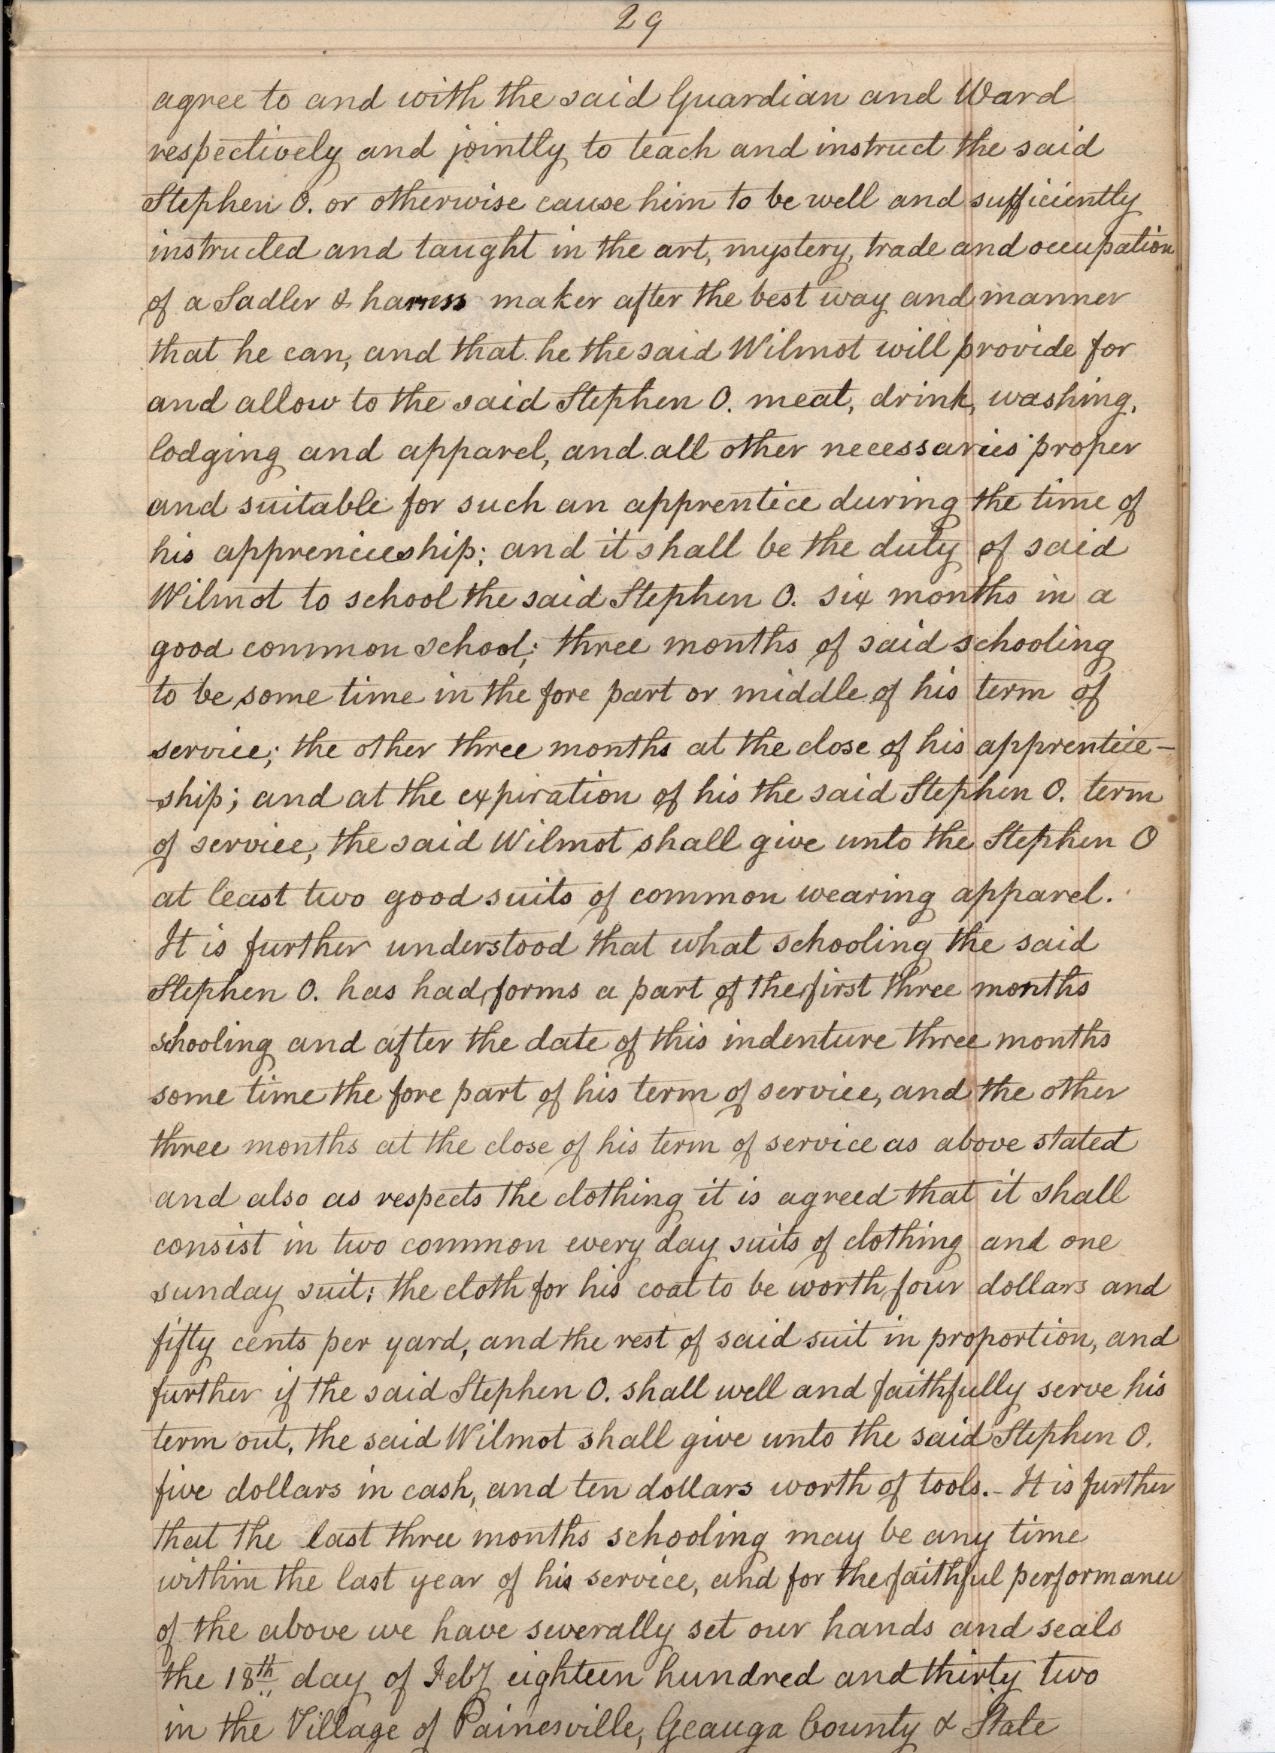 29
agree to and with the said Guardian and Ward
respectively and jointly to teach and instruct the said
Stephen O. or otherwise cause him to be well and sufficiently
instructed and taught in the art, mystery, trade and occupation
of a Sadler & harness maker after the best way and manner
that he can, and that he the said Wilmot will provide for
and allow to the said Stephen O. meat, drink, washing,
lodging and apparel, and all other necessaries proper
and suitable for such an apprentice during the time of
his apprenticeship; and it shall be the duty of said
Wilmot to school the said Stephen O. six months in a
good common school; three months of said schooling
to be some time in the fore part or middle of his term of
service; the other three months at the close of his apprentice-
-ship; and at the expiration of his the said Stephen O. term
of service, the said Wilmot shall give unto the Stephen O
at least two good suits of common wearing apparel.
It is further understood that what schooling the said
Stephen O. has had, forms a part of the first three months
schooling and after the date of this indenture three months
some time the fore part of his term of service, and the other
three months at the close of his term of service as above stated
and also as respects the clothing it is agreed that it shall
consist in two common every day suits of clothing and one
sunday suit; the cloth for his coat to be worth four dollars and
fifty cents per yard, and the rest of said suit in proportion, and
further if the said Stephen O. shall well and faithfully serve his
term out, the said Wilmot shall give unto the said Stephen O.
five dollars in cash, and ten dollars worth of tools. - It is further
that the last three months schooling may be any time
within the last year of his service, and for the faithful performance
of the above we have severally set our hands and seals
the 18th day of Feby eighteen hundred and thirty two
in the Village of Painesville, Geauga County & State